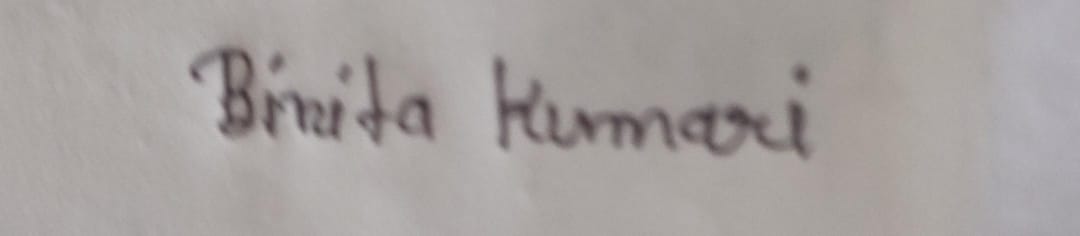 Binita Kumari